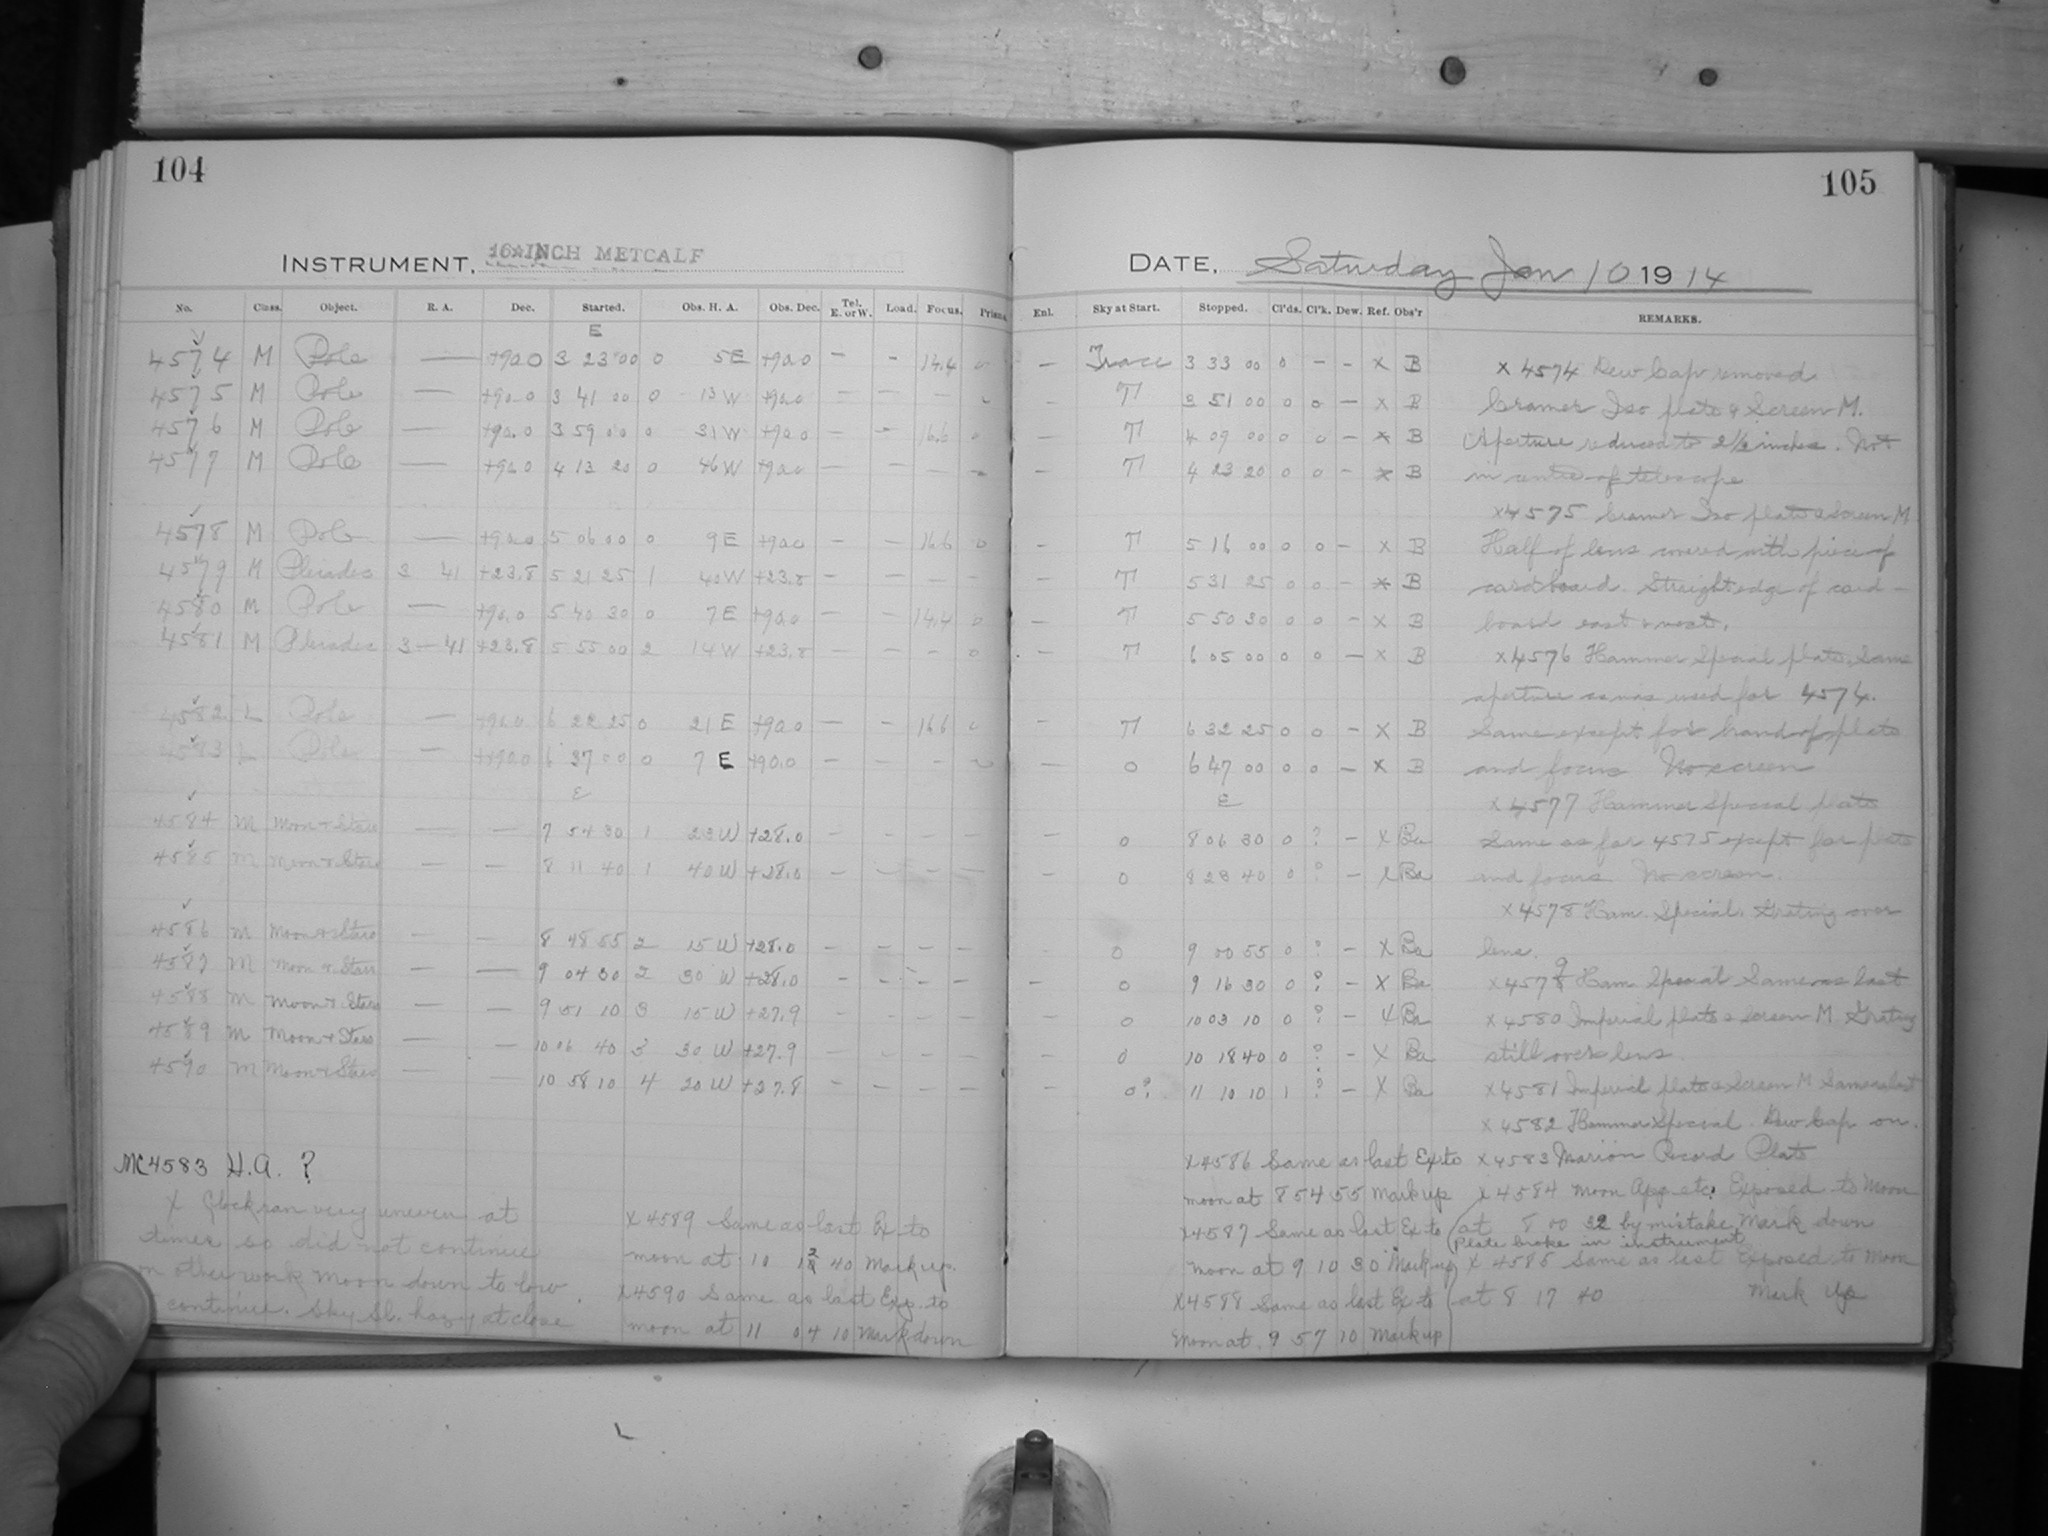 104
INSTRUMENT, 16-INCH METCALF
No. Class. Object. R. A. Dec. Started. Obs. H. A. Obs. Dec. Tel. E. or W. Load. Focus. Prism.
E
4574 M Pole — +90.0 3 23 00 0 5 E +90.0 — - 14.4 0
4575 M Pole — +90.0 3 41 00 0 13 W +90.0 — — —
4576 M Pole — +90.0 3 59 00 0 31 W +90.0 — - 16.6 0
4577 M Pole — +90.0 4 13 20 0 46 W +90.0 — — —
4578 M Pole — +90.0 5 06 00 0 9 E +90.0 — — 16.6 0
4579 M Pleiades 3 41 +23.8 5 21 25 1 40 W +23.8 — — — —
4580 M Pole — +90.0 5 40 30 0 7 E +90.0 — — 14.4 0
4581 M Pleiades 3 — 41 +23.8 5 55 00 2 14 W +23.8 — — — 0
4582 L Pole — +90.0 6 22 25 0 21 E +90.0 — - 16.6
4583 L Pole — +90.0 6 37 00 0 7 E +90.0 — — —
E
4584 M Moon & Stars — — 7 54 30 1 23 W +28.0 — — — —
4585 M Moon & Stars — — 8 11 40 1 40 W +28.0 — — — —
4586 M Moon & Stars — — 8 48 55 2 15 W +28.0 — — — —
4587 M Moon & Stars — — 9 04 30 2 30 W +28.0 — — — —
4588 M Moon & Stars — — 9 51 10 3 15 W +27.9 — — — —
4589 M Moon & Stars — — 10 06 40 3 30 W +27.9 — — — —
4590 M Moon & Stars — — 10 58 10 4 20 W +27.8 — — — —
MC4583 H.A. ?
X Clock ran very uneven at
times so did not continue
on other work moon down to low
continue. Sky Sl. hazy at close
X 4589 Same as last Ex to
moon at 10 12 40 Mark up.
X4590 Same as last Exp. to
moon at 11 04 10 Mark down
105
DATE, Saturday Jan 10 1914
Enl. Sky at Start. Stopped. Cl'ds. Cl'k. Dew. Ref. Obs'r REMARKS.
— Trace 3 33 00 0 — — X B
— T 3 51 00 0 0 — X B
— T 4 09 00 0 0 — X B
— T 4 23 20 0 0 — X B
— T 5 16 00 0 0 — X B
— T 5 31 25 0 0 — X B
— T 5 50 30 0 0 — X B
— T 6 05 00 0 0 — X B
— T 6 32 25 0 0 — X B
— 0 6 47 00 0 0 — X B
E
— 0 8 06 30 0 ? — X Ba
— 0 8 23 40 0 ? — X Ba
0 9 00 55 0 ? — X Ba
— 0 9 16 30 0 ? — X Ba
0 10 03 10 0 ? — X Ba
— 0 10 18 40 0 ? — X Ba
— 0? 11 10 10 1 ? — X Ba
X 4574 Dew Cap removed
Cramer Iso plate & Screen M.
Aperture reduced to 2½ inches. Not
in centre of telescope
X4575 Cramer Iso plate & Screen M
Half of lens covered with piece of
cardboard. Straight edge of card-
board east & west.
X4576 Hammer Special plate. Same
aperture as was used for 4574.
Same except for brand of plate
and focus No screen
X 4577 Hammer Special plate
Same as for 4575 except for plate
and focus. No screen.
X 4578 Ham. Special. Grating over
lens.
X4579 Ham Special Same as last
X 4580 Imperial plate & screen M Grating
still over lens.
X4581 Imperial plate & Screen M Same as last
X 4582 Hammer Special Dew Cap on.
X 4583 Marion Record Plate
X 4584 Moon App. etc. Exposed to Moon
at 8 00 32 by mistake Mark down
Plate broke in instrument
X 4585 Same as last Exposed to Moon
at 8 17 40 Mark Up
X4586 Same as last Ex to
moon at 8 54 55 Mark up
X4587 Same as last Ex to
moon at 9 10 30 Mark up
X4588 Same as last Ex to
Moon at 9 57 10 Mark up